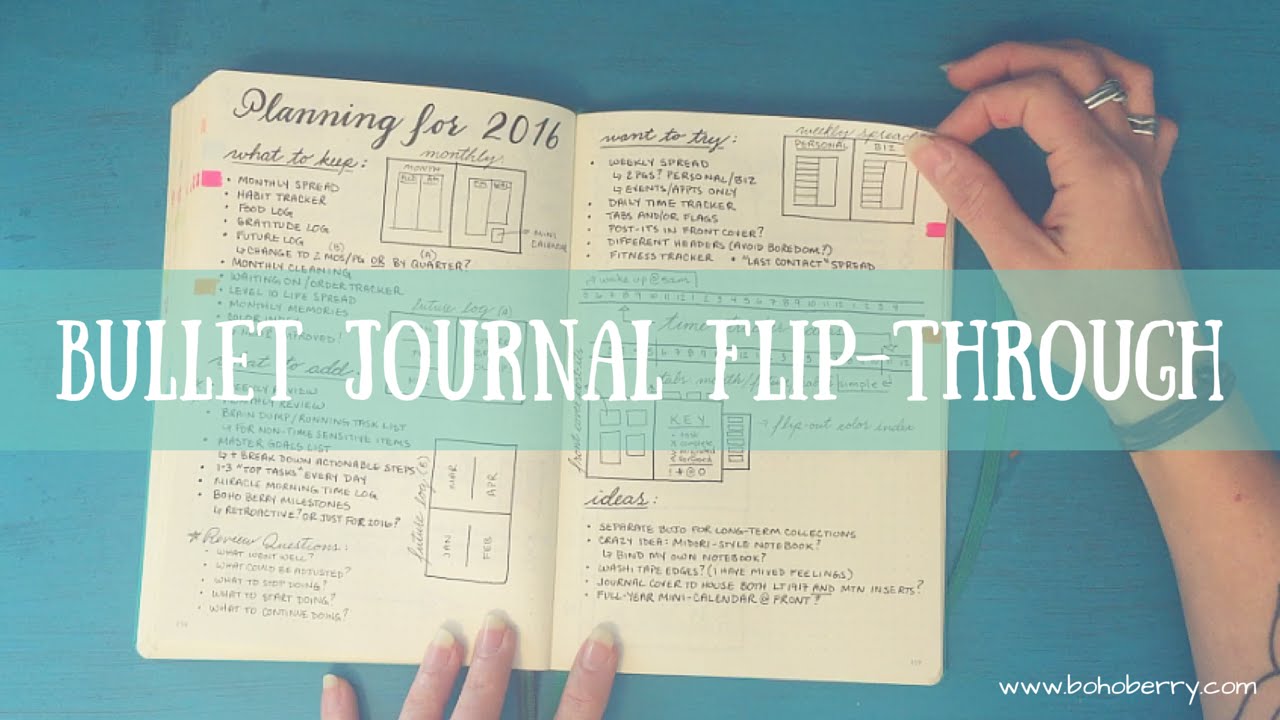 Planning for 2016
what to keep:
• MONTHLY SPREAD
• HABIT TRACKER
• FOOD LOG
• GRATITUDE LOG
• FUTURE LOG
(B) (A)
↳ CHANGE TO 2 MOS/PG OR BY QUARTER?
• MONTHLY CLEANING
• WAITING ON/ORDER TRACKER
• LEVEL 10 LIFE SPREAD
• MONTHLY MEMORIES
monthly
MONTH
MINI
CALENDAR
future log (A)
what to add:
WEEKLY REVIEW
MONTHLY REVIEW
BRAIN DUMP/RUNNING TASK LIST
↳ FOR NON-TIME SENSITIVE ITEMS
MASTER GOALS LIST
↳ + BREAK DOWN ACTIONABLE STEPS
• 1-3 "TOP TASKS" EVERY DAY
• MIRACLE MORNING TIME LOG
• BOHO BERRY MILESTONES
↳ RETROACTIVE? OR JUST FOR 2016?
future log (B)
MAR
APR
JAN
FEB
* Review Questions:
• WHAT WENT WELL?
• WHAT COULD BE ADJUSTED?
• WHAT TO STOP DOING?
• WHAT TO START DOING?
• WHAT TO CONTINUE DOING?
want to try:
• WEEKLY SPREAD
↳ 2 PGS? PERSONAL/BIZ
↳ EVENTS/APPTS ONLY
• DAILY TIME TRACKER
• TABS AND/OR FLAGS
• POST-ITS IN FRONT COVER?
• DIFFERENT HEADERS (AVOID BOREDOM?)
• FITNESS TRACKER • "LAST CONTACT" SPREAD
weekly spread
PERSONAL
BIZ
wake up @ 5am
5 6 7 8 9 10 11 12 1 2 3 4 5 6 7 8 9 10 11 12 1 2 3 4
BULLET JOURNAL FLIP-THROUGH
KEY
• task
x complete
→ flip-out color index
ideas:
• SEPARATE BUJO FOR LONG-TERM COLLECTIONS
• CRAZY IDEA: MIDORI-STYLE NOTEBOOK?
↳ BIND MY OWN NOTEBOOK?
• WASHI TAPE EDGES? (I HAVE MIXED FEELINGS)
• JOURNAL COVER TO HOUSE BOTH LT1917 AND MTN INSERTS?
• FULL-YEAR MINI-CALENDAR @ FRONT?
www.bohoberry.com